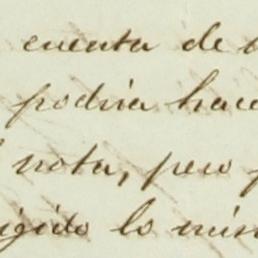 cuenta de
podria hace
nota, pero
igido lo mis